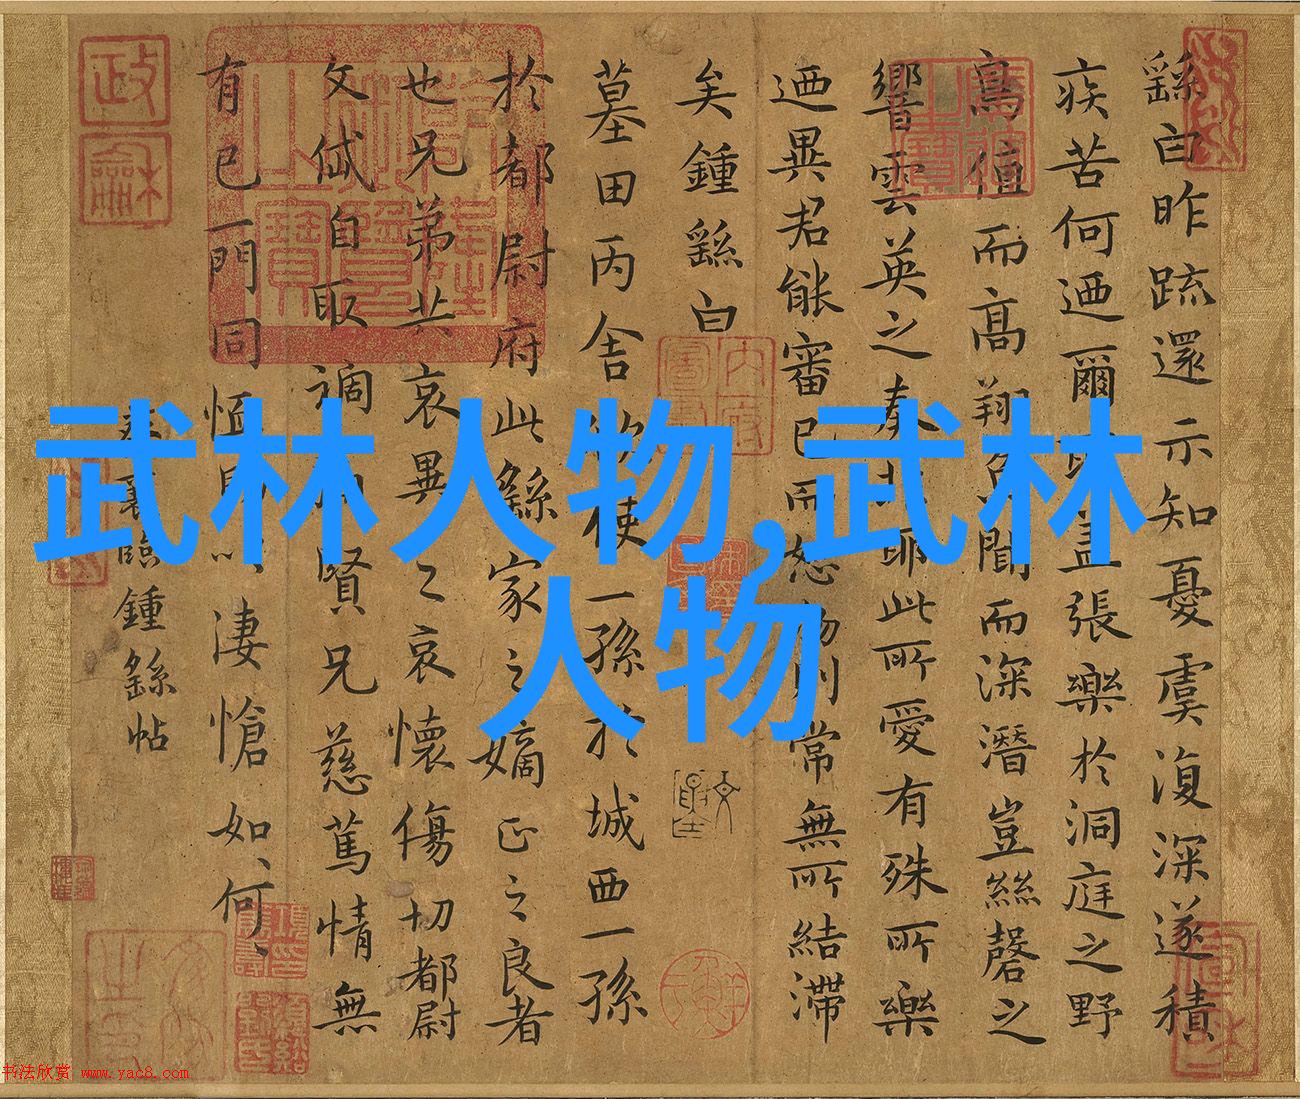 武林人物,武林
人物
繇白昨疏還示知憂虞復深遂積
疾苦何迺爾盖張樂於洞庭之野
鳥值而高翔名聞而深潛豈絲磬之
響雲英之奏非耶此所愛有殊所樂
迺異君能審己而恕物則常無所結滯
矣鍾繇白
墓田丙舍欲使一孫於城西一孫
於都尉府此繇家之嫡正之良者
也兄弟共哀異之哀懷傷切都尉
文岱自取禍賢兄慈篤情無
有已一門同恤悽愴如何
襄臨鍾繇帖
政
龢
书法欣赏 www.yac8.com